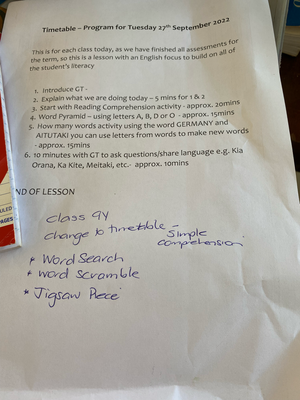 Timetable – Program for Tuesday 27th September 2022
This is for each class today, as we have finished all assessments for
the term, so this is a lesson with an English focus to build on all of
the student's literacy
1. Introduce GT -
2. Explain what we are doing today – 5 mins for 1 & 2
3. Start with Reading Comprehension activity - approx. 20mins
4. Word Pyramid – using letters A, B, D or O - approx. 15mins
5. How many words activity using the word GERMANY and
AITUTAKI you can use letters from words to make new words
- approx. 15mins
6. 10 minutes with GT to ask questions/share language e.g. Kia
Orana, Ka Kite, Meitaki, etc.- approx. 10mins
ND OF LESSON
class 9Y
change to timetable – simple
comprehension
* Word Search
* Word Scramble
* Jigsaw Piece
ULED
PAGES